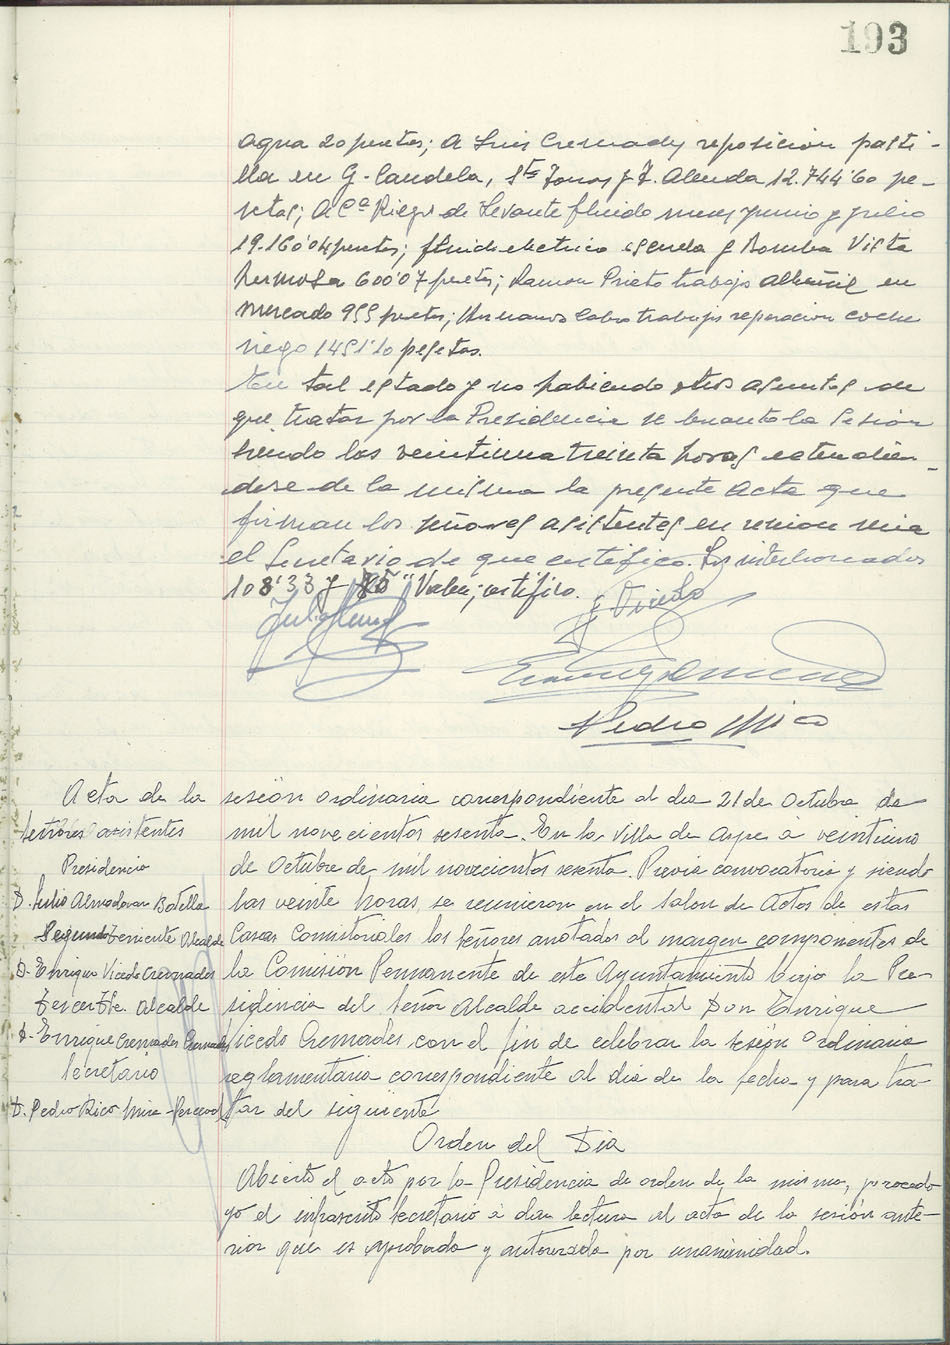 193
agua 20 pesetas; A Luis Cremades reposicion pasti-
lla en G. Candela, Sta Faz y F. Alenda 12.744'60 pe-
setas; a Cª Riegos de Levante fluido meses junio y julio
19.160'04 pesetas; fluido electrico escuela y Bomba Vista
Hermosa 600'07 pesetas; Ramon Prieto trabajo albañil en
mercado 955 pesetas; Hermanos Cobo trabajos reparacion coche
riego 1451'10 pesetas.
En tal estado y no habiendo otros asuntos de
que tratar por la Presidencia se levanto la sesion
siendo las veintiuna treinta horas extendien-
dose de la misma la presente acta que
firman los señores asistentes en union mia
el Secretario de que certifico.
108'33 y Valen; certifico.
Pedro Rico
Acta de la sesiön ordinaria correspondiente al dia 21 de Octubre de
mil novecientos sesenta. En la Villa de Aspe a veintiuno
de Octubre de mil novecientos sesenta. Previa convocatoria y siendo
las veinte horas, se reunieron en el Salon de Actos de estas
Casas Consistoriales los señores anotados al margen componentes de
la Comisiön Permanente de este Ayuntamiento bajo la Pre-
sidencia del señor Alcalde accidental Don Enrique
Vicedo Cremades con el fin de celebrar la sesión ordinaria
reglamentaria correspondiente al dia de la fecha y para tra-
tar del siguiente
Señores asistentes
Presidencia
D. Julio Almodovar Botella
Segundo Teniente Alcalde
D. Enrique Vicedo Cremades
Tercer Tte. Alcalde
D. Enrique Cremades Cremades
Secretario
D. Pedro Rico Mira-Perceval
Orden del Dia
Abierto el acto por la Presidencia de orden de la misma, procedo
yo el infrascrito Secretario a dar lectura al acta de la sesión ante-
rior que es aprobada y autorizada por unanimidad.